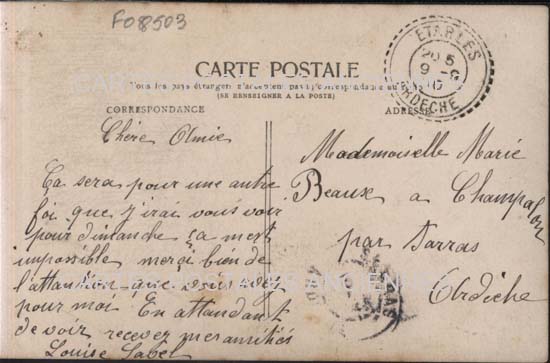 F08503
CARTE POSTALE
Tous les pays étrangers n'acceptent pas la correspondance au
(SE RENSEIGNER A LA POSTE)
CORRESPONDANCE
ADRESSE
ETABLES
20 5
9
ARDECHE
Chère Olmie
Ça sera pour une autre
foi que j'irai vous voir
pour dimanche ça mest
impossible merci bien de
l'attention que vous avez
pour moi En attendant
de voir recevez mes amitiés
Louise Sabel
Mademoiselle Marie
Beaux a Champalon
par Sarras
Ardèche